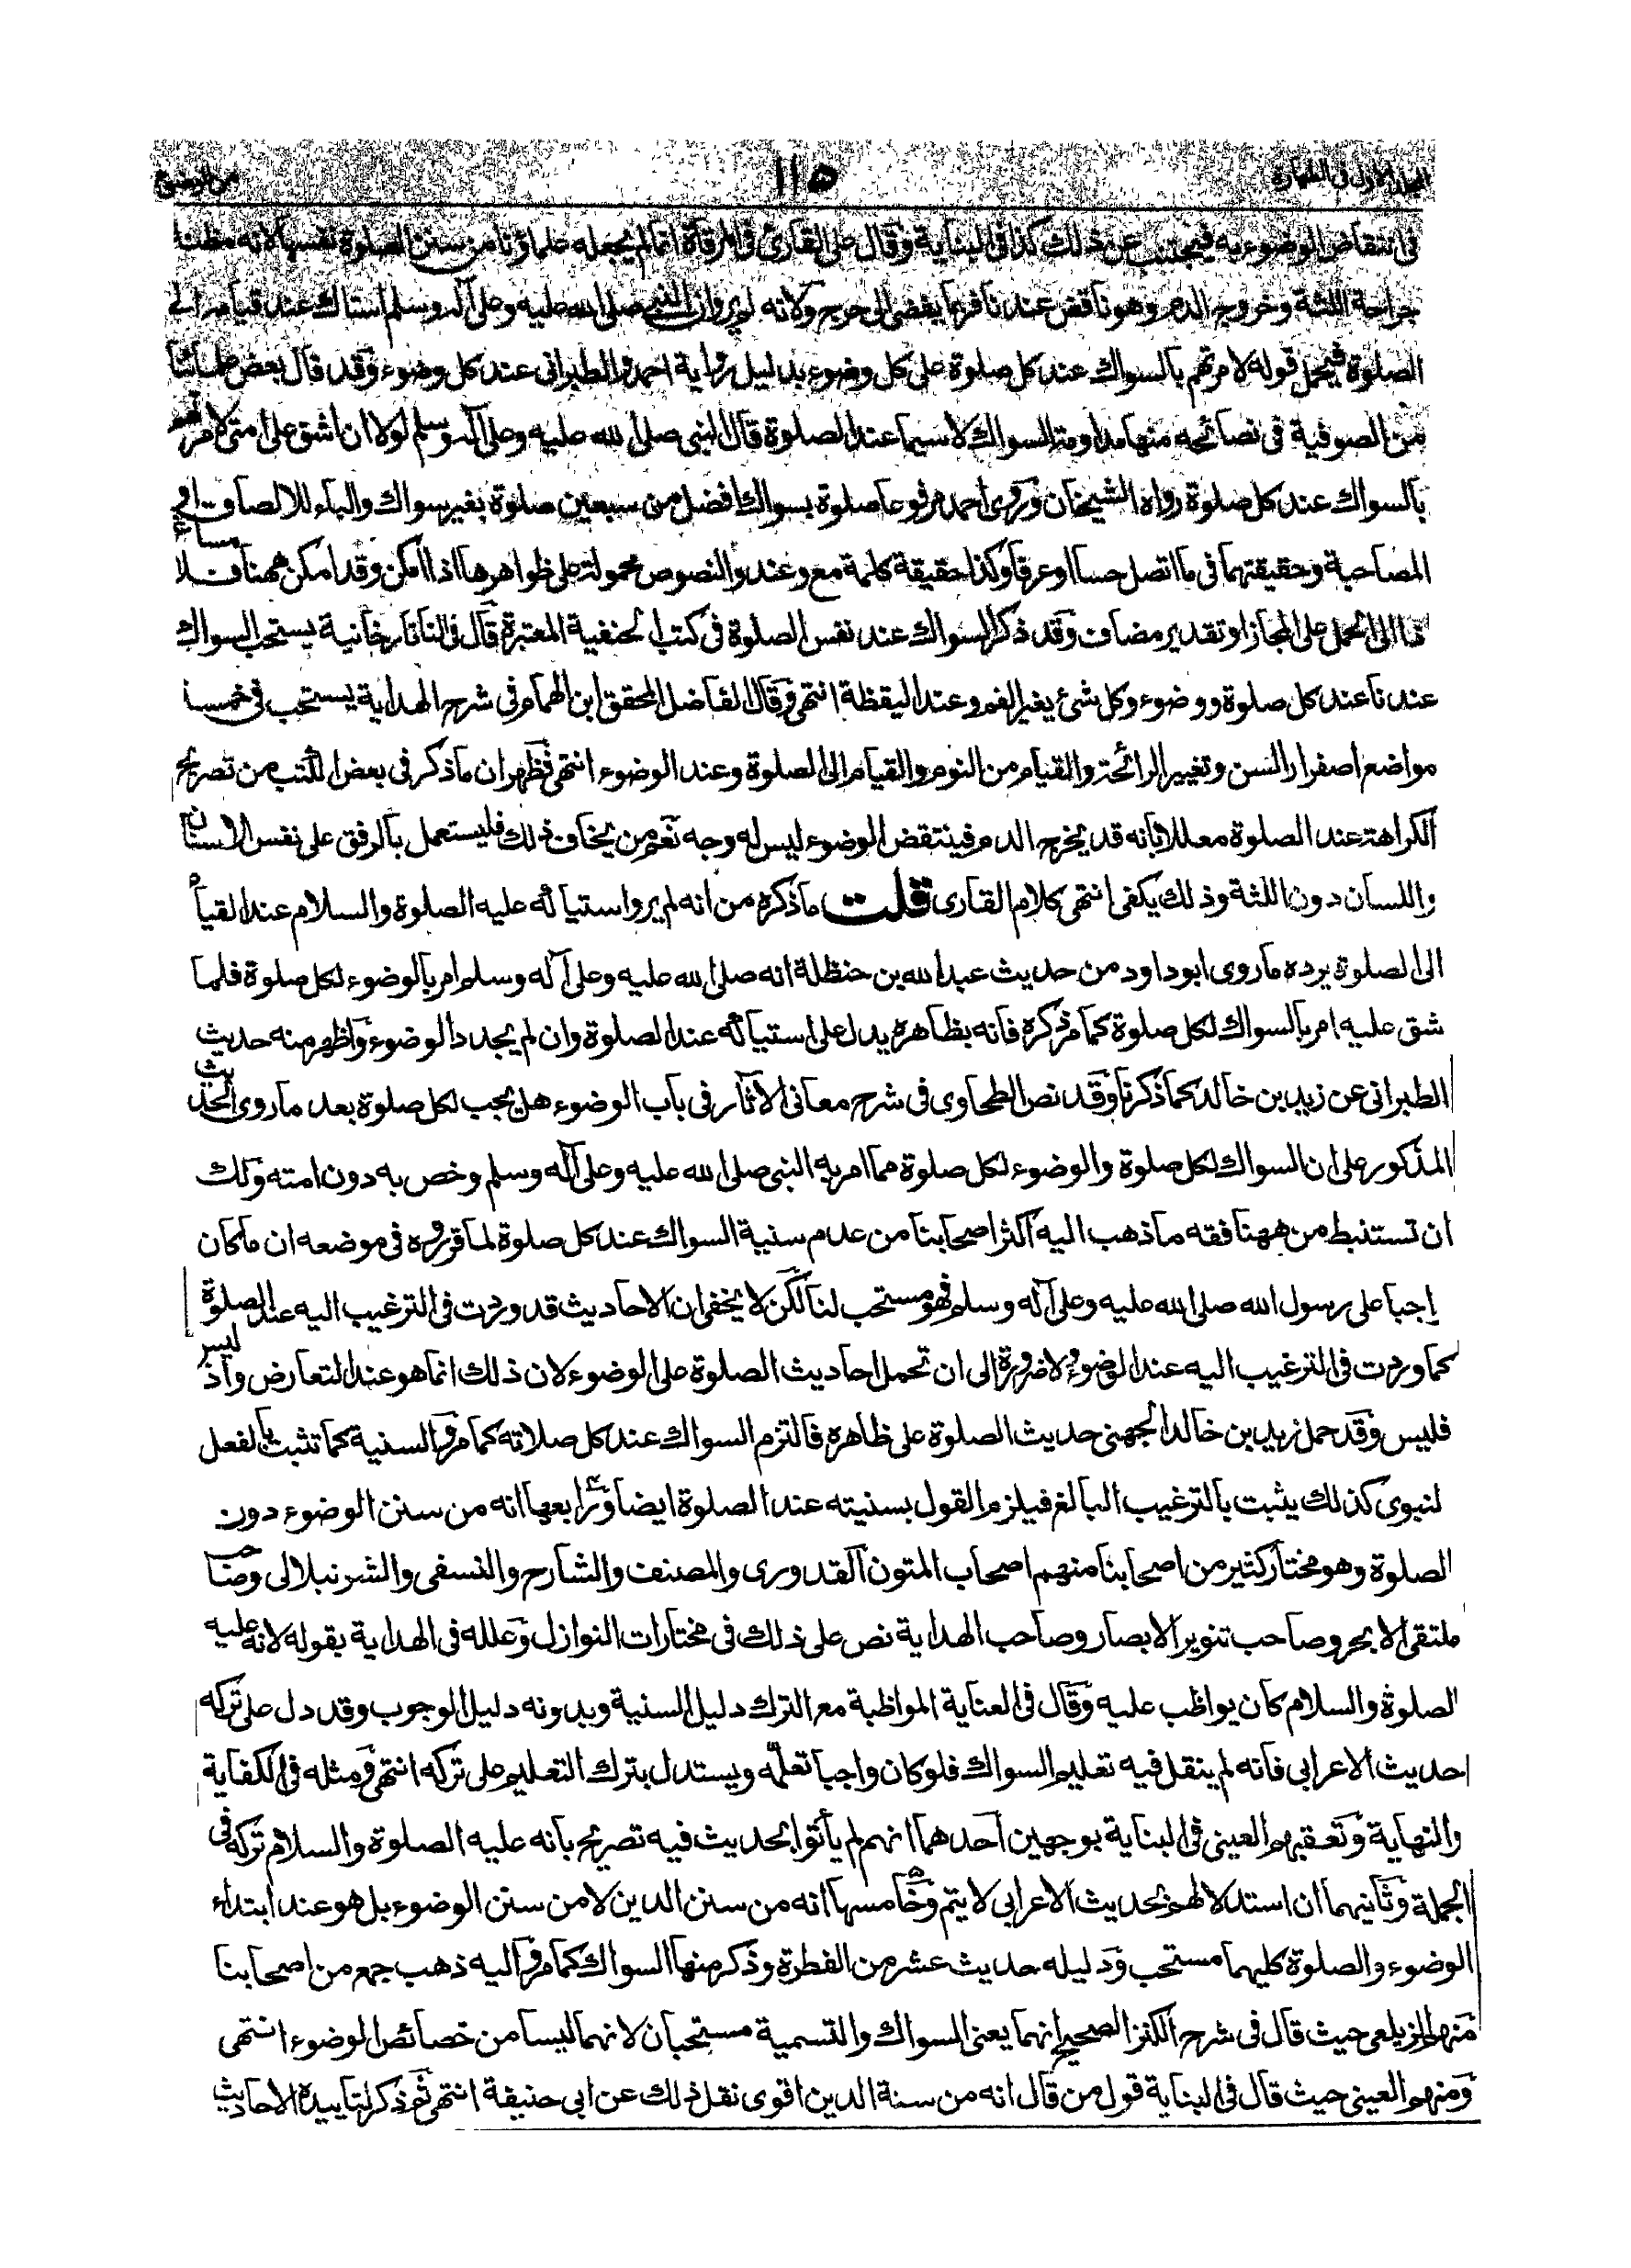 المجلد الاول فى الطهارة ١١٥
فى انتقاض الوضوء به فيجتنب عن ذلك كذا فى البناية وقال على القارى فى المرقاة انما لم يجعله علماؤنا من سنن الصلوة نفسها لانه مظنة
جراحة اللثة وخروج الدم وهو ناقض عندنا فربما يفضى الى حرج ولانه لم يرو ان النبى صلى الله عليه وعلى آله وسلم استاك عند قيامه الى
الصلوة فيحمل قوله لامرتهم بالسواك عند كل صلوة على كل وضوء بدليل رواية احمد والطبرانى عند كل وضوء وقد قال بعض علمائنا
من الصوفية فى نصائحه منها مداومة السواك لا سيما عند الصلوة قال النبى صلى الله عليه وعلى آله وسلم لولا ان اشق على امتى لامرتهم
بالسواك عند كل صلوة رواه الشيخان وروى احمد مرفوعا صلوة بسواك افضل من سبعين صلوة بغير سواك والباء للالصاق او
المصاحبة وحقيقتهما فى ما اتصل حسا او عرفا وكذا حقيقة كلمة مع وعند والنصوص محمولة على ظواهرها اذا امكن وقد امكن ههنا فلا مساغ
اذا الى الحمل على المجاز او تقدير مضاف وقد ذكر السواك عند نفس الصلوة فى كتب الحنفية المعتبرة قال فى التاتارخانية يستحب السواك
عندنا عند كل صلوة ووضوء وكل شئ يغير الفم وعند اليقظة انتهى وقال الفاضل المحقق ابن الهمام فى شرح الهداية يستحب فى خمسة
مواضع اصفرار السن وتغيير الرائحة والقيام من النوم والقيام الى الصلوة وعند الوضوء انتهى فظهر ان ما ذكر فى بعض الكتب من تصريح
الكراهة عند الصلوة معللا بانه قد يخرج الدم فينتقض الوضوء ليس له وجه نعم من يخاف ذلك فليستعمل بالرفق على نفس الاسنان
واللسان دون اللثة وذلك يكفى انتهى كلام القارى قلت ما ذكره من انه لم يرو استياكه عليه الصلوة والسلام عند القيام
الى الصلوة يرده ما روى ابو داود من حديث عبد الله بن حنظلة انه صلى الله عليه وعلى آله وسلم امر بالوضوء لكل صلوة فلما
شق عليه امر بالسواك لكل صلوة كما مر ذكره فانه بظاهره يدل على استياكه عند الصلوة وان لم يجدد الوضوء واظهر منه حديث
الطبرانى عن زيد بن خالد كما ذكرنا وقد نص الطحاوى فى شرح معانى الآثار فى باب الوضوء هل يجب لكل صلوة بعد ما روى الحديث
المذكور على ان السواك لكل صلوة والوضوء لكل صلوة مما امر به النبى صلى الله عليه وعلى آله وسلم وخص به دون امته ولك
ان تستنبط من ههنا فقه ما ذهب اليه اكثر اصحابنا من عدم سنية السواك عند كل صلوة لما قرروه فى موضعه ان ما كان
اجبا على رسول الله صلى الله عليه وعلى آله وسلم فهو مستحب لنا لكن لا يخفى ان الاحاديث قد وردت فى الترغيب اليه عند الصلوة
كما وردت فى الترغيب اليه عند الوضوء ولا ضرورة الى ان تحمل احاديث الصلوة على الوضوء لان ذلك انما هو عند التعارض واذ ليس
فليس وقد حمل زيد بن خالد الجهنى حديث الصلوة على ظاهره فالتزم السواك عند كل صلاته كما مر والسنية كما تثبت بالفعل
لنبوى كذلك يثبت بالترغيب البالغ فيلزم القول بسنيته عند الصلوة ايضا ورابعها انه من سنن الوضوء دون
الصلوة وهو مختار كثير من اصحابنا منهم اصحاب المتون القدورى والمصنف والشارح والنسفى والشرنبلالى وصاحب
ملتقى الابحر وصاحب تنوير الابصار وصاحب الهداية نص على ذلك فى مختارات النوازل وعلله فى الهداية بقوله لانه عليه
الصلوة والسلام كان يواظب عليه وقال فى العناية المواظبة مع الترك دليل السنية وبدونه دليل الوجوب وقد دل على تركه
حديث الاعرابى فانه لم ينقل فيه تعليم السواك فلو كان واجبا تعلمه ويستدل بترك التعليم على تركه انتهى ومثله فى الكفاية
والنهاية وتعقبهم العينى فى البناية بوجهين احدهما انهم لم يأتوا بحديث فيه تصريح بانه عليه الصلوة والسلام تركه فى
الجملة وثانيهما ان استدلالهم بحديث الاعرابى لا يتم وخامسها انه من سنن الدين لا من سنن الوضوء بل هو عند ابتداء
الوضوء والصلوة كليهما مستحب ودليله حديث عشر من الفطرة وذكر منها السواك كما مر واليه ذهب جمع من اصحابنا
منهم الزيلعى حيث قال فى شرح الكنز الصحيح انهما يعنى السواك والتسمية مستحبان لانهما ليسا من خصائص الوضوء انتهى
ومنهم العينى حيث قال فى البناية قول من قال انه من سنة الدين اقوى نقل ذلك عن ابى حنيفة انتهى ثم ذكر لتاييده الاحاديث